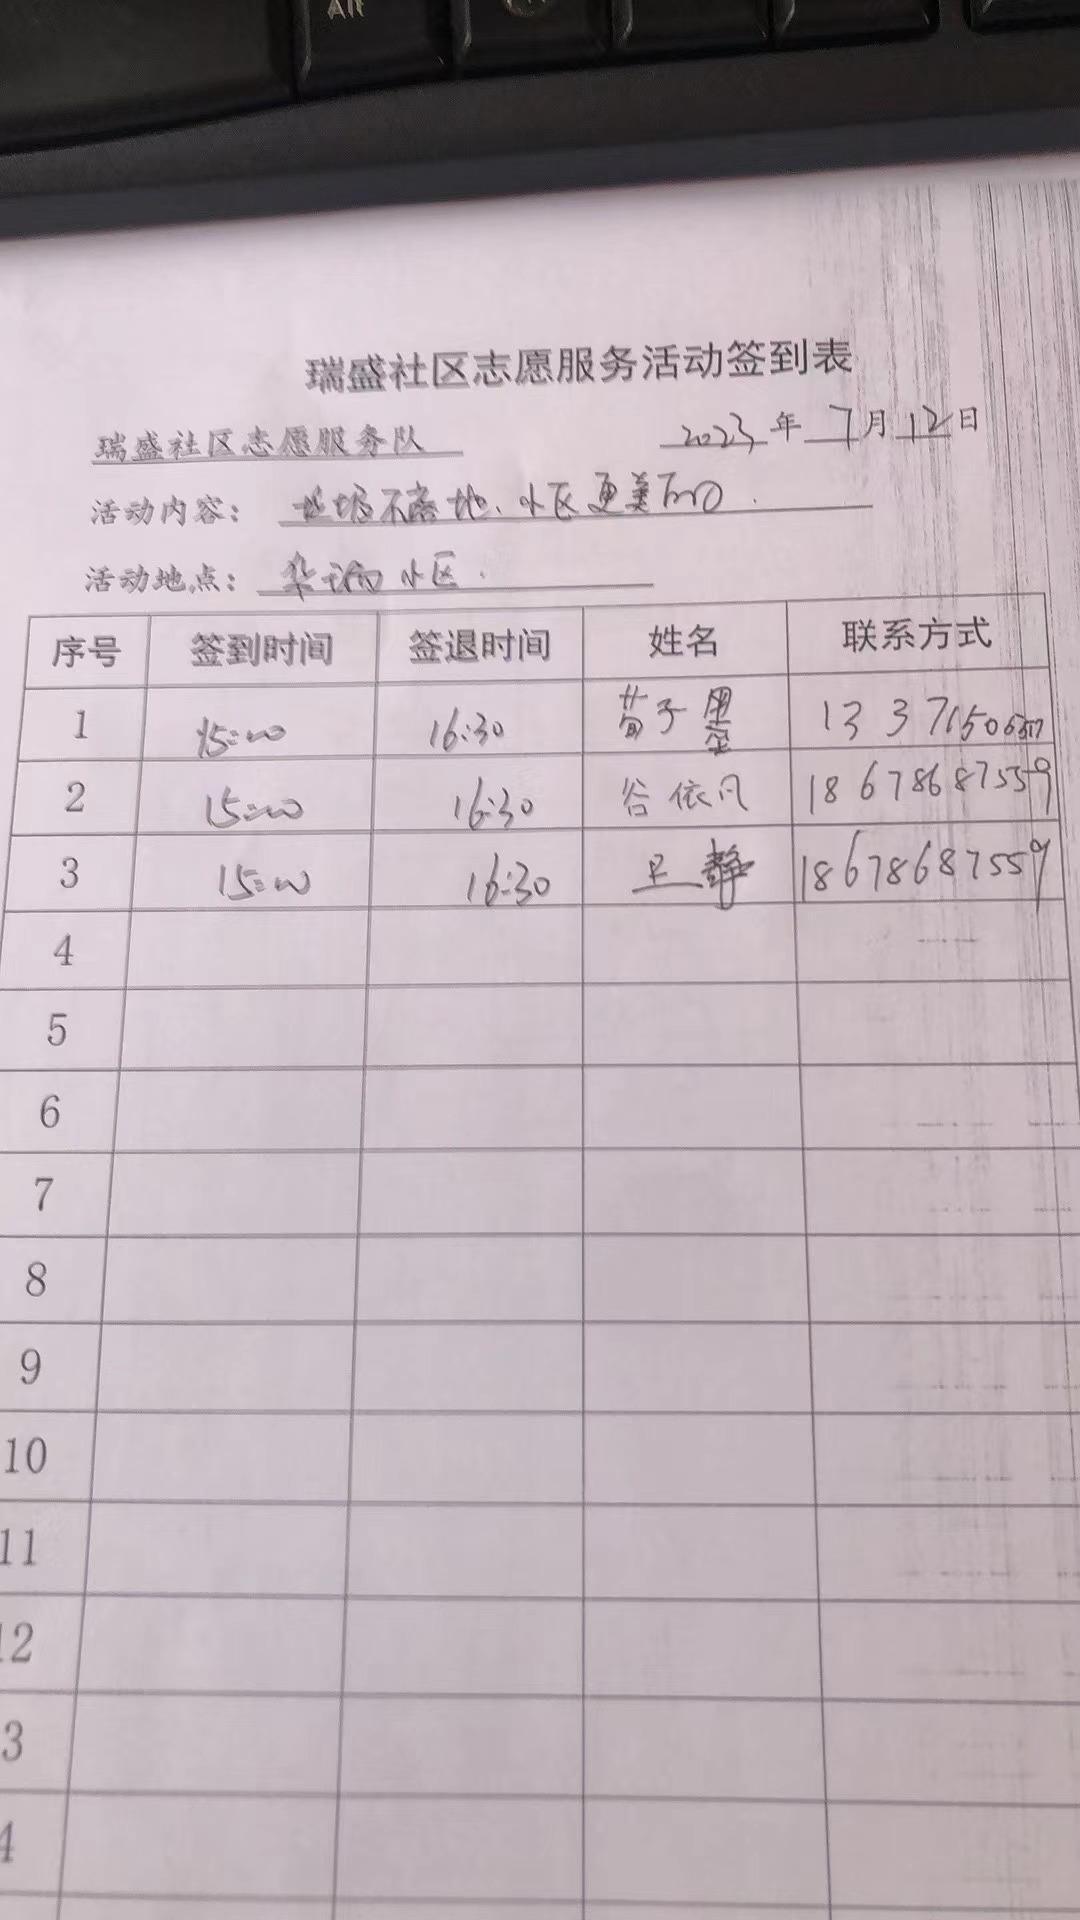 Alt
瑞盛社区志愿服务活动签到表
瑞盛社区志愿服务队 2023年7月12日
活动内容: 垃圾不落地、小区更美丽
活动地点: 小区
序号 签到时间 签退时间 姓名 联系方式
1 15:00 16:30 荀子墨 133715065
2 15:00 16:30 谷依凡 18678687559
3 15:00 16:30 卫静 18678687559
4
5
6
7
8
9
10
11
12
3
4